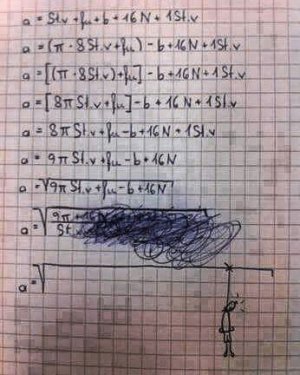 a = St.v + fμ + b + 16N + 1St.v
a = (π · 8St.v + fμ) - b + 16N + 1St.v
a = [(π · 8St.v) + fμ] - b + 16N + 1St.v
a = [8πSt.v + fμ] - b + 16N + 1St.v
a = 8πSt.v + fμ - b + 16N + 1St.v
a = 9πSt.v + fμ - b + 16N
a = √9πSt.v + fμ - b + 16N
a = √9π + 16N
St.v
a = √